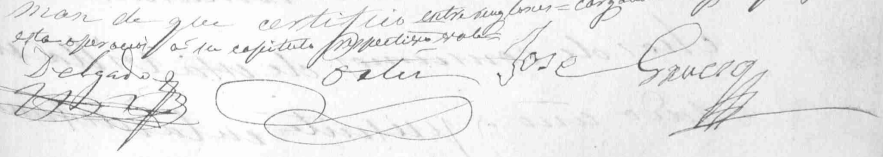 man de que certifico entre renglones = cargan
esta operacion á su capitulo respectivo vale =
Delgado Ortin Jose